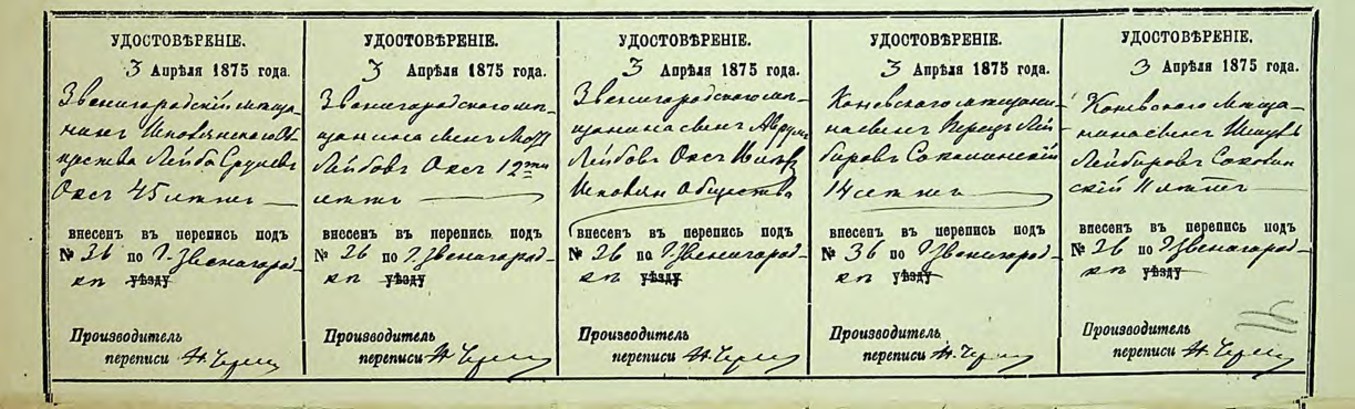 УДОСТОВѢРЕНІЕ.
3 Апрѣля 1875 года.
Звенигородскій мѣща-
нинъ
Лейба Сруловъ
Оксъ 45 лѣтъ
внесенъ въ перепись подъ
№ 36 по Г. Звенигород-
кѣ уѣзду
Производитель
переписи
УДОСТОВѢРЕНІЕ.
3 Апрѣля 1875 года.
Звенигородскаго мѣ-
щанина сынъ
Лейбовъ Оксъ 12ти
лѣтъ
внесенъ въ перепись подъ
№ 36 по Г. Звенигород-
кѣ уѣзду
Производитель
переписи
УДОСТОВѢРЕНІЕ.
3 Апрѣля 1875 года.
Звенигородскаго мѣ-
щанина сынъ Аврумъ
Лейбовъ Оксъ
Общества
внесенъ въ перепись подъ
№ 36 по Г. Звенигород-
кѣ уѣзду
Производитель
переписи
УДОСТОВѢРЕНІЕ.
3 Апрѣля 1875 года.
Каневскаго мѣщани-
на сынъ Перецъ Лей-
бировъ
14 лѣтъ
внесенъ въ перепись подъ
№ 36 по Г. Звенигород-
кѣ уѣзду
Производитель
переписи
УДОСТОВѢРЕНІЕ.
3 Апрѣля 1875 года.
Каневскаго мѣща-
нина сынъ
Лейбировъ
скій 11 лѣтъ
внесенъ въ перепись подъ
№ 36 по Г. Звенигород-
кѣ уѣзду
Производитель
переписи
16